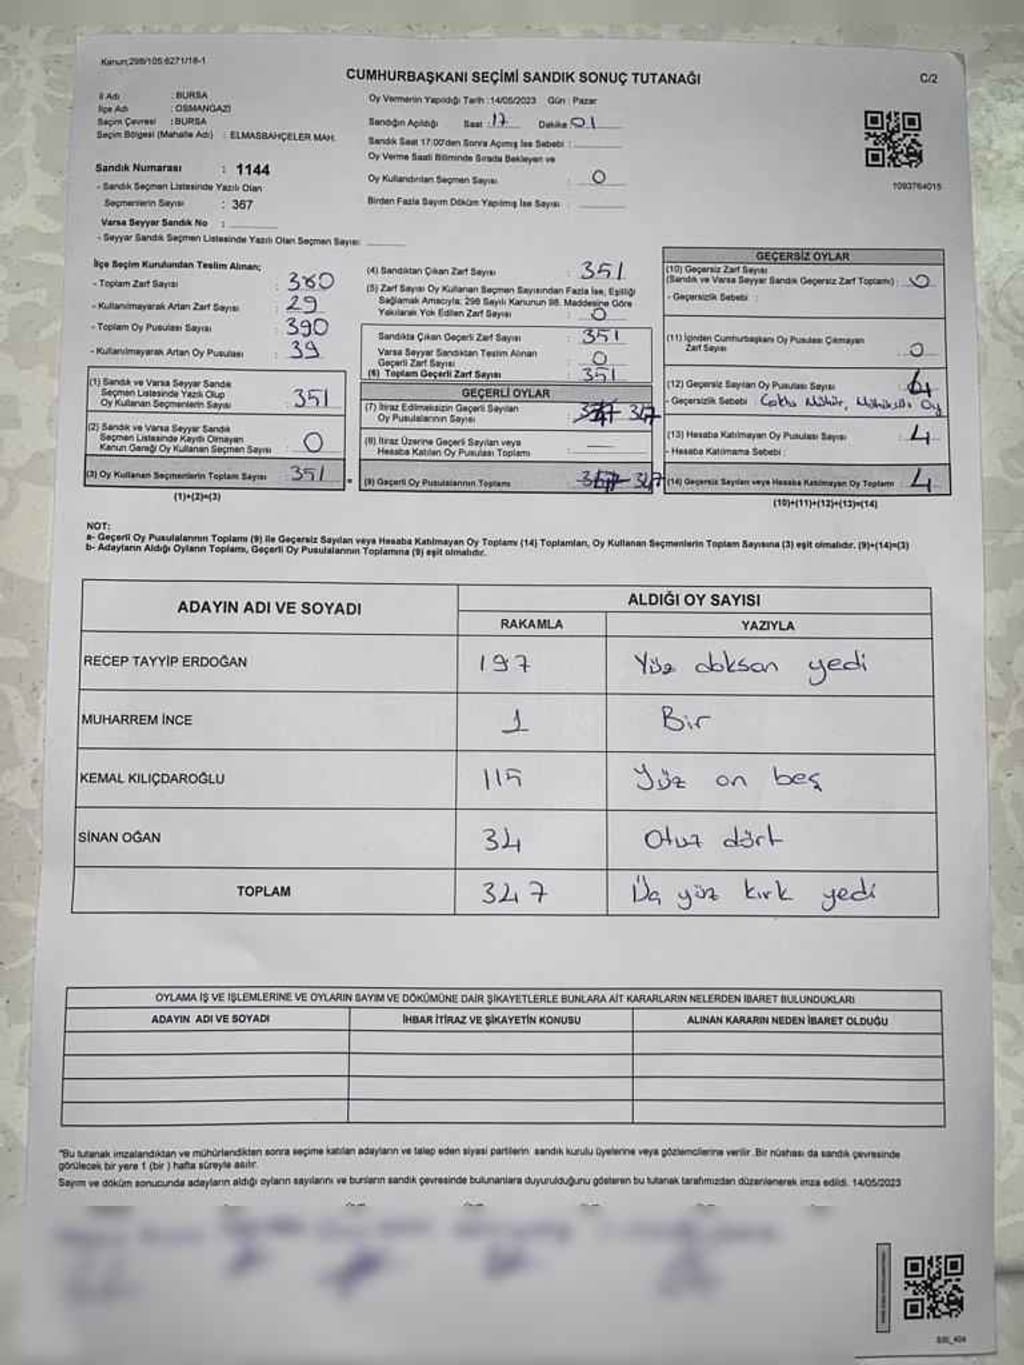 Kanun;298/105;6271/18-1
CUMHURBAŞKANI SEÇİMİ SANDIK SONUÇ TUTANAĞI
C/2
İl Adı : BURSA
İlçe Adı : OSMANGAZİ
Seçim Çevresi : BURSA
Seçim Bölgesi (Mahalle Adı) : ELMASBAHÇELER MAH.
Sandık Numarası : 1144
- Sandık Seçmen Listesinde Yazılı Olan
Seçmenlerin Sayısı : 367
Varsa Seyyar Sandık No :
- Seyyar Sandık Seçmen Listesinde Yazılı Olan Seçmen Sayısı:
Oy Vermenin Yapıldığı Tarih :14/05/2023 Gün : Pazar
Sandığın Açıldığı Saat : 17 Dakika 01
Sandık Saat 17:00'den Sonra Açımış İse Sebebi :
Oy Verme Saati Bitiminde Sırada Bekleyen ve
Oy Kullandırılan Seçmen Sayısı : 0
Birden Fazla Sayım Döküm Yapılmış İse Sayısı :
1093764015
İlçe Seçim Kurulundan Teslim Alınan;
- Toplam Zarf Sayısı : 380
- Kullanılmayarak Artan Zarf Sayısı : 29
- Toplam Oy Pusulası Sayısı : 390
- Kullanılmayarak Artan Oy Pusulası : 39
(1) Sandık ve Varsa Seyyar Sandık
Seçmen Listesinde Yazılı Olup
Oy Kullanan Seçmenlerin Sayısı : 351
(2) Sandık ve Varsa Seyyar Sandık
Seçmen Listesinde Kaydı Olmayan
Kanun Gereği Oy Kullanan Seçmen Sayısı : 0
(3) Oy Kullanan Seçmenlerin Toplam Sayısı : 351
(1)+(2)=(3)
(4) Sandıktan Çıkan Zarf Sayısı : 351
(5) Zarf Sayısı Oy Kullanan Seçmen Sayısından Fazla İse, Eşitliği
Sağlamak Amacıyla; 298 Sayılı Kanunun 98. Maddesine Göre
Yakılarak Yok Edilen Zarf Sayısı : 0
Sandıkta Çıkan Geçerli Zarf Sayısı : 351
Varsa Seyyar Sandıktan Teslim Alınan
Geçerli Zarf Sayısı : 0
(6) Toplam Geçerli Zarf Sayısı : 351
GEÇERLİ OYLAR
(7) İtiraz Edilmeksizin Geçerli Sayılan
Oy Pusulalarının Sayısı : 347
(8) İtiraz Üzerine Geçerli Sayılan veya
Hesaba Katılan Oy Pusulası Toplamı :
(9) Geçerli Oy Pusulalarının Toplamı : 347
GEÇERSİZ OYLAR
(10) Geçersiz Zarf Sayısı
(Sandık ve Varsa Seyyar Sandık Geçersiz Zarf Toplamı) : 0
- Geçersizlik Sebebi :
(11) İçinden Cumhurbaşkanı Oy Pusulası Çıkmayan
Zarf Sayısı : 0
(12) Geçersiz Sayılan Oy Pusulası Sayısı : 4
- Geçersizlik Sebebi : Çoklu Mühür, Mühürsüz Oy
(13) Hesaba Katılmayan Oy Pusulası Sayısı : 4
- Hesaba Katılmama Sebebi :
(14) Geçersiz Sayılan veya Hesaba Katılmayan Oy Toplamı : 4
(10)+(11)+(12)+(13)=(14)
NOT:
a- Geçerli Oy Pusulalarının Toplamı (9) ile Geçersiz Sayılan veya Hesaba Katılmayan Oy Toplamı (14) Toplamları, Oy Kullanan Seçmenlerin Toplam Sayısına (3) eşit olmalıdır. (9)+(14)=(3)
b- Adayların Aldığı Oyların Toplamı, Geçerli Oy Pusulalarının Toplamına (9) eşit olmalıdır.
ADAYIN ADI VE SOYADI
ALDIĞI OY SAYISI
RAKAMLA YAZIYLA
RECEP TAYYİP ERDOĞAN 197 Yüz doksan yedi
MUHARREM İNCE 1 Bir
KEMAL KILIÇDAROĞLU 115 Yüz on beş
SİNAN OĞAN 34 Otuz dört
TOPLAM 347 Üç yüz kırk yedi
OYLAMA İŞ VE İŞLEMLERİNE VE OYLARIN SAYIM VE DÖKÜMÜNE DAİR ŞİKAYETLERLE BUNLARA AİT KARARLARIN NELERDEN İBARET BULUNDUKLARI
ADAYIN ADI VE SOYADI İHBAR İTİRAZ VE ŞİKAYETİN KONUSU ALINAN KARARIN NEDEN İBARET OLDUĞU
"Bu tutanak imzalandıktan ve mühürlendikten sonra seçime katılan adayların ve talep eden siyasi partilerin sandık kurulu üyelerine veya gözlemcilerine verilir. Bir nüshası da sandık çevresinde
görülecek bir yere 1 (bir ) hafta süreyle asılır.
Sayım ve döküm sonucunda adayların aldığı oyların sayılarını ve bunların sandık çevresinde bulunanlara duyurulduğunu gösteren bu tutanak tarafımızdan düzenlenerek imza edildi. 14/05/2023